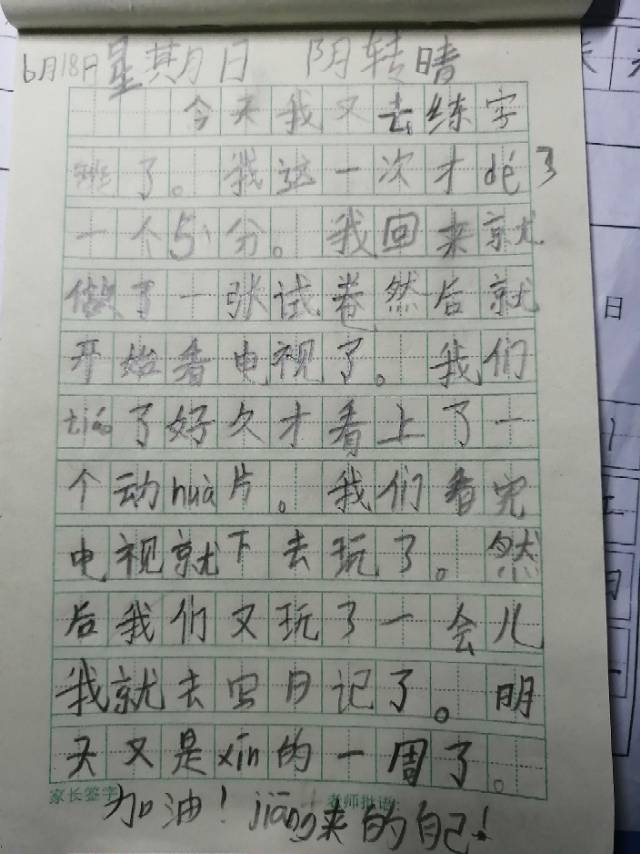 6月18日星期日 阴转晴
今天我又去练字
班了。我这一次才dé了
一个5分。我回来就
做了一张试卷然后就
开始看电视了。我们
tiáo了好久才看上了一
个动huà片。我们看完
电视就下去玩了。然
后我们又玩了一会儿
我就去写日记了。明
天又是xīn的一周了。
家长签字 老师批语:
加油!jiāng来的自己!